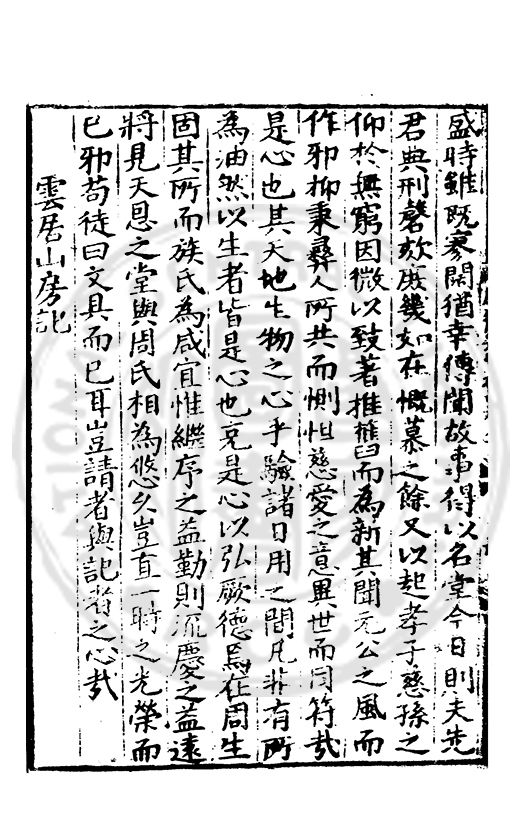 盛時雖既寥闊猶幸傳聞故事得以名堂今日則夫先
君典刑磬欬庶幾如在慨慕之餘又以起孝子慈孫之
仰於無窮因微以致著推舊而為新其聞元公之風而
作邪抑秉彞人所共而惻怛慈愛之意異世而同符哉
是心也其天地生物之心乎驗諸日用之間凡非有所
為油然以生者皆是心也充是心以弘厥德焉在周生
固其所而族氏為咸宜惟繼序之益勤則流慶之益遠
將見天恩之堂與周氏相為悠久豈直一時之光榮而
已邪苟徒曰文具而已耳豈請者與記者之心哉
雲居山房記